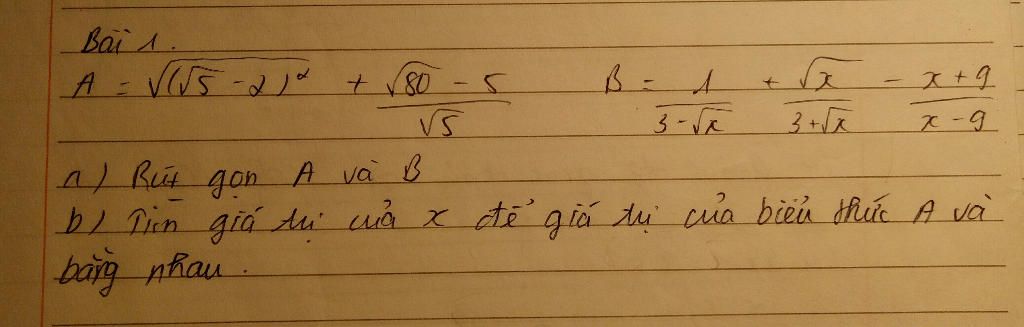 Bài 1.
A = √(√5 - 2)² + (√80 - 5)/√5 B = 1/(3-√x) + √x/(3+√x) - (x+9)/(x-9)
a) Rút gọn A và B
b) Tìm giá trị của x để giá trị của biểu thức A và
bằng nhau.